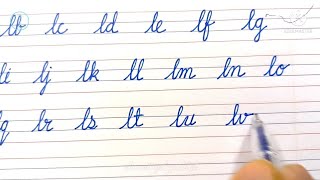 lb lc ld le lf lg
li lj lk ll lm ln lo
lq lr ls lt lu lv